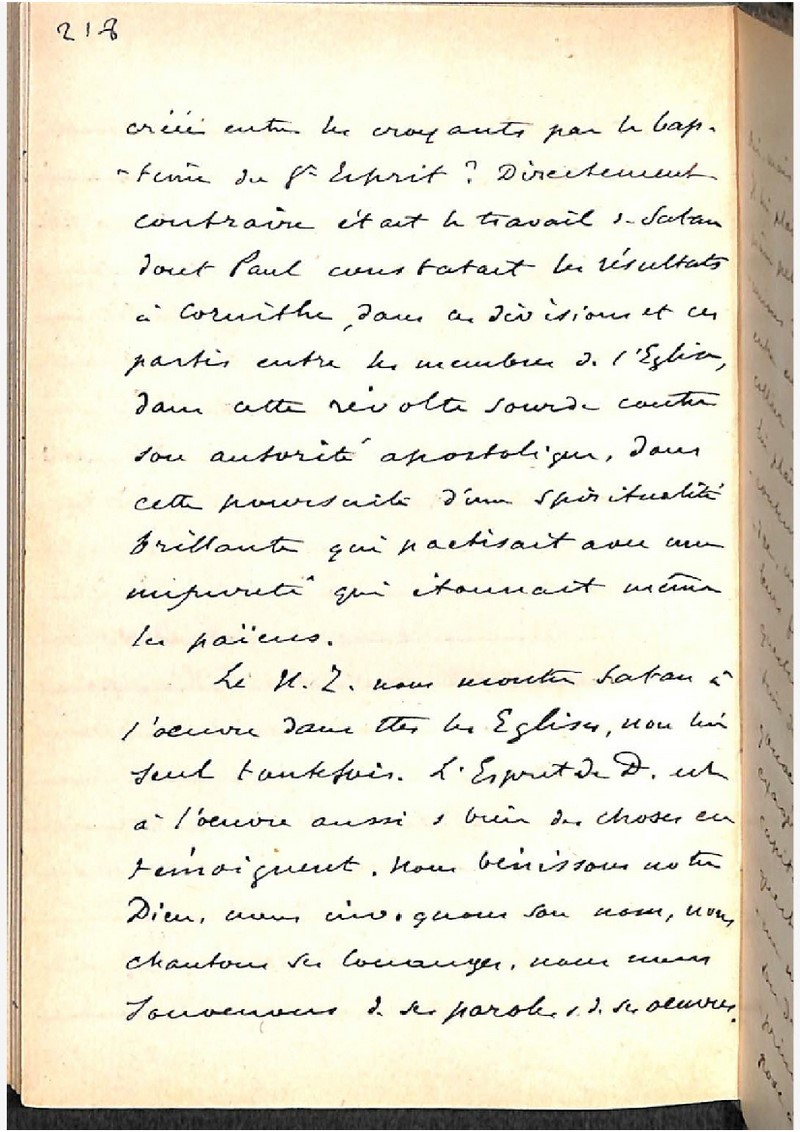 218
créée entre les croyants par le bap-
-tême du St Esprit ? Directement
contraire était le travail de Satan
dont Paul constatait les résultats
à Corinthe, dans ces divisions et ces
partis entre les membres de l'Eglise,
dans cette révolte sourde contre
son autorité apostolique, dans
cette poursuite d'une spiritualité
brillante qui pactisait avec une
impureté qui étonnait même
les païens.
Le N. T. nous montre Satan à
l'oeuvre dans ttes les Eglises, non lui
seul toutefois. L'Esprit de D. est
à l'oeuvre aussi & bien des choses en
témoignent. Nous bénissons notre
Dieu, nous invoquons son nom, nous
chantons ses louanges, nous nous
souvenons de ses paroles & de ses oeuvres.